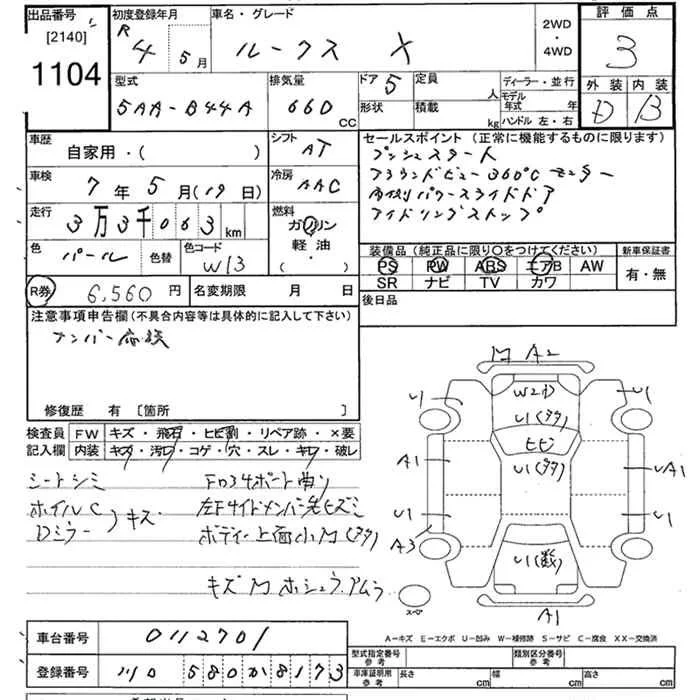 出品番号 [2140] 1104
初度登録年月 R 4 5月
車名・グレード ルークス X
2WD・4WD
評価点 3
外装 D 内装 B
型式 5AA-B44A
排気量 660 CC
ドア 5 形状
定員 人 積載 kg
ディーラー・並行
モデル年式 年
ハンドル 左・右
車歴 自家用・( )
シフト AT
車検 7年5月(19日)
冷房 AAC
走行 3万3千063km
燃料 ガソリン 軽油・( ・ )
色 パール 色替 色コード W13
R券 6,560円 名変期限 月 日
セールスポイント(正常に機能するものに限ります)
プッシュスタート
アラウンドビュー360°Cモニター
両側パワースライドドア
アイドリングストップ
装備品(純正品に限り〇をつけてください) 新車保証書
PS PW ABS エアB AW 有・無
SR ナビ TV カワ
後日品
注意事項申告欄(不具合内容等は具体的に記入して下さい)
ナンバー
修復歴 有 [箇所 ]
検査員記入欄 FW キズ・飛石・ヒビ割・リペア跡・×要
内装 キズ・汚れ・コゲ・穴・スレ・キレ・破レ
シートシミ
ホイルC
Dミラー)キズ
Fロ34ポート曲り
左Fサイドメンバー先ヒズミ
ボディー上面小M(タタ)
キズMホシュラプムラ
M A2
W2 ワ
U1 U1(タタ) U1
ヒビ
A1 U1(タタ) UA1
U1 U1
A3
U1(数)
A1
スペア
A-キズ E-エクボ U-凹み W-補修跡 S-サビ C-腐食 XX-交換済
車台番号 0112701
登録番号 580か8173
型式指定番号 参考 類別区分番号 参考
車庫証明用 参考 長さ cm 幅 cm 高さ cm